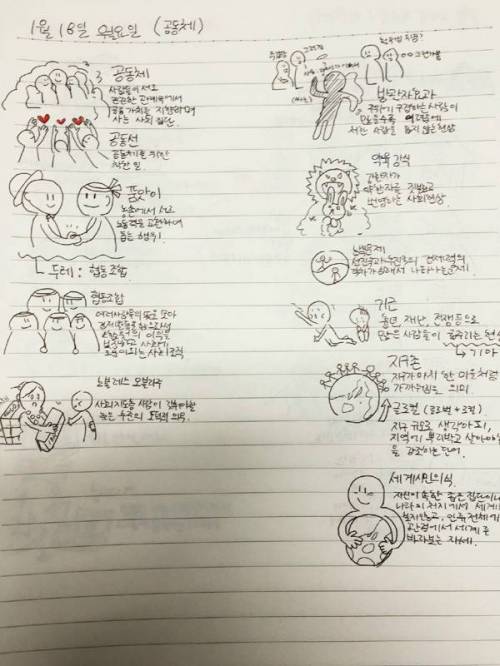 1월 18일 월요일 (공동체)
공동체
사람들이 서로
관계에서
공동 가치를 지향하며
사는 사회 집단.
공동선
공동체를 위한
착한 일.
품앗이
농촌에서 서로
노동력을 교환하여
돕는 행위.
두레 : 협동조합
협동조합
여러사람들이 뜻을 모아
이익을
사회조직
노블레스 오블리주
사회지도층 사람이 갖추어야할
높은 수준의 도덕적 의무.
방관자효과
구하기 구경하는 사람이
많을수록 어려움에
처한 사람을 돕지 않는 현상
약육강식
강한자가
약한자를 지배하고
번영하는 사회현상.
남북문제
선진국과 경제적
나타나는 문제
기근
흉년, 재난, 전쟁등으로
많은 사람들이 굶주리는 현상
→ 기아
지구촌
지구가 마치 한 마을처럼
가까워짐을 의미
글로컬 (글로벌 + 로컬)
지구 규모로 생각하되,
지역에 뿌리박고 살아야함
을 강조하는 단어.
세계시민의식
자신이 속한 좁은 집단이나
나라의 처지에서 세계를
보지않고, 인류 전체의
관점에서 세계를
바라보는 자세.